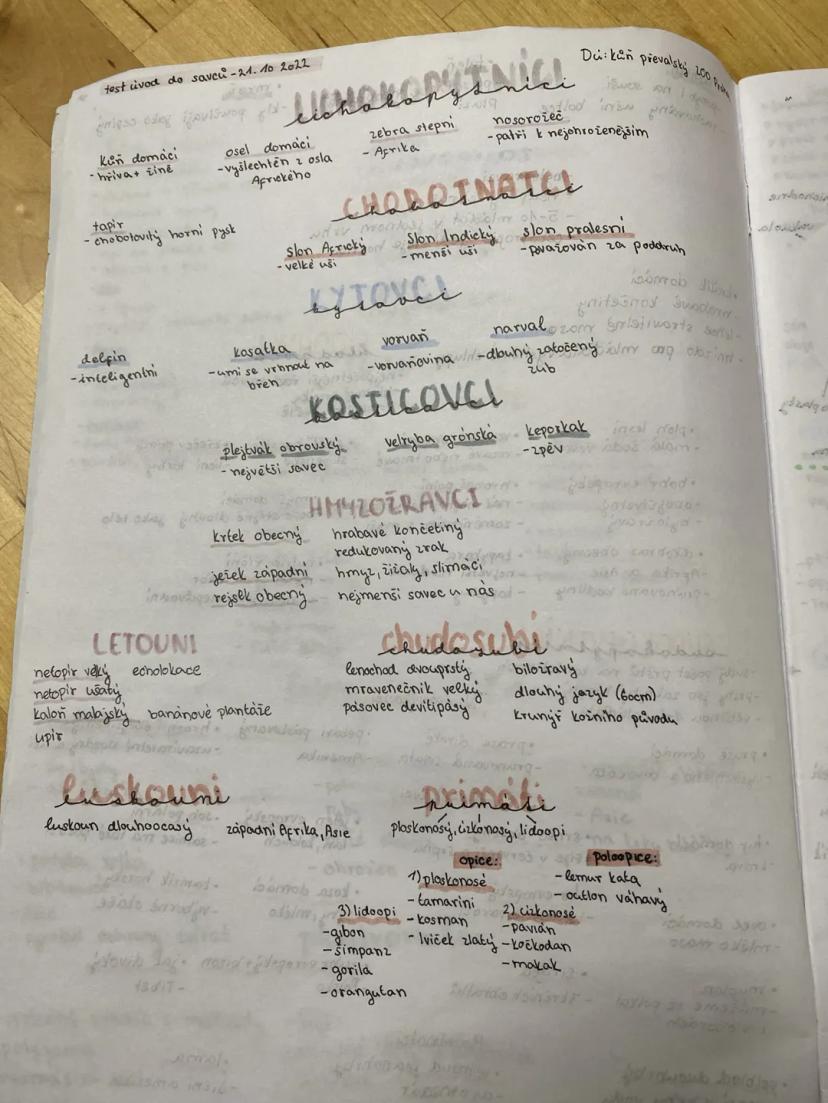 test úvod do savců - 21.10 2022
Dú: kůň převalský, zoo Praha
LICHOKOPYTNÍCI
lichokopytníci
kůň domácí
- hříva + žíně
osel domácí
- vyšlechtěn z osla
Afrického
zebra stepní
- Afrika
nosorožec
- patří k nejohroženějším
tapír
- chobotovitý horní pysk
CHOBOTNATCI
chobotnatci
slon Africký
- velké uši
slon Indický
- menší uši
slon pralesní
- považován za poddruh
KYTOVCI
kytovci
delfín
- inteligentní
kosatka
- umí se vrhnout na
břeh
vorvaň
- vorvaňovina
narval
- dlouhý zatočený
zub
KOSTICOVCI
kosticovci
plejtvák obrovský
- největší savec
velryba grónská
keporkak
- zpěv
HMYZOŽRAVCI
krtek obecný hrabavé končetiny
redukovaný zrak
ježek západní hmyz, žížaly, slimáci
rejsek obecný nejmenší savec u nás
LETOUNI
netopír velký echolokace
netopír ušatý
kaloň malajský banánové plantáže
upír
chudozubí
chudozubí
lenochod dvouprstý býložravý
mravenečník velký dlouhý jazyk (60cm)
pásovec devítipásý krunýř kožního původu
luskouni
luskouni
luskoun dlouhoocasý západní Afrika, Asie
primáti
primáti
ploskonosý, úzkonosý, lidoopi
opice:
1) ploskonosé
- tamaríni
- kosman
- lvíček zlatý
2) úzkonosé
- pavián
- kočkodan
- makak
3) lidoopi
- gibon
- šimpanz
- gorila
- orangutan
poloopice:
- lemur kata
- outloň váhavý